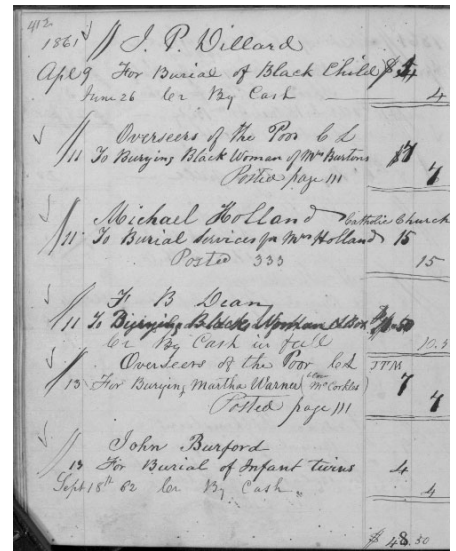 412
1861 J. P. Dillard
Apl 9 For Burial of Black Child $ 4
June 26 Cr By Cash 4
Overseers of the Poor C L
11 To Burying Black Woman of Mrs Burtons 7
Posted page 111 7
Michael Holland Catholic Church
11 To Burial Services for Mrs Holland 15
Posted 333 15
F B Dean
11 To Burying Black Woman & Box $10.50
Cr By Cash in full 10.5
Overseers of the Poor C L J P M
13 For Burying Martha Warner (McCorkles) 7
Posted page 111 7
John Burford
13 For Burial of Infant twins 4
Sept 18th 62 Cr By Cash " 4
$ 48.50